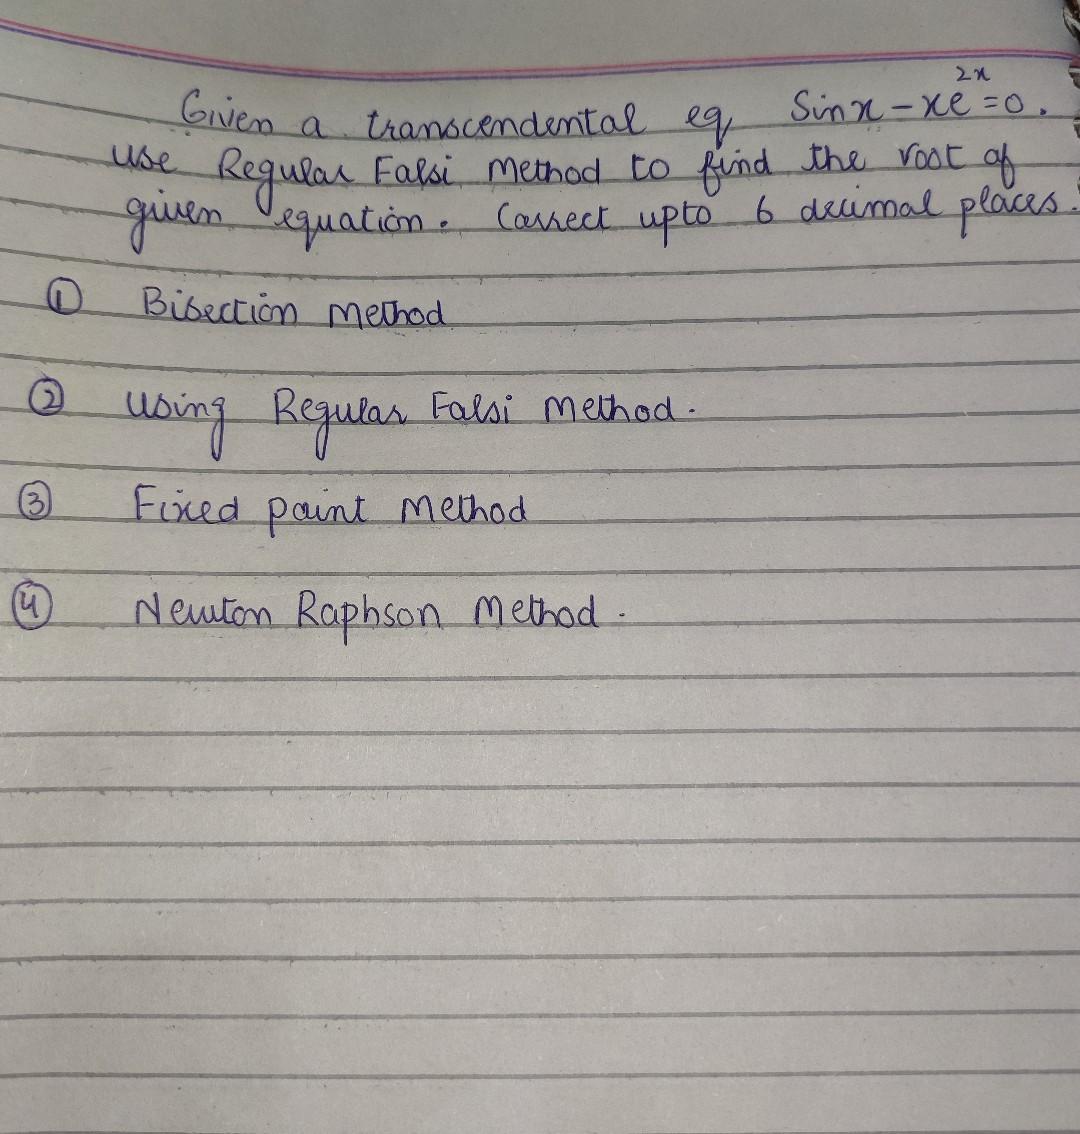 Given a transcendental eq Sinx - xe^2x = 0.
use Regular Falsi Method to find the root of
given equation. Correct upto 6 decimal places.
① Bisection Method
② Using Regular Falsi Method.
③ Fixed point Method
④ Newton Raphson Method.